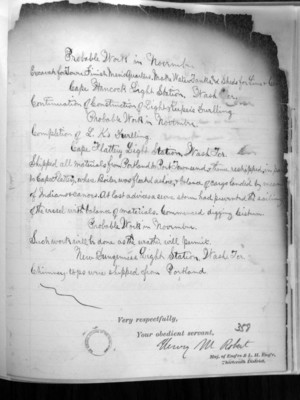 Probable Work in November
Excavate for Tower, Finish Main Quarters, Make Water Tanks & Sheds for
Cape Hancock Light Station, Wash Ter
Continuation of Construction of Light Keepers Dwelling
Probable Work in November
Completion of L. K's Dwelling
Cape Flattery Light Station Wash Ter
Shipped all materials from Portland to Port Townsend & there reshipped
to Cape Flattery, where Boiler was landed & balance of cargo landed by means
of Indians & canoes. At last advices a severe storm had prevented the
of the vessel with balance of materials. Commenced digging Cistern
Probable Work in November.
Such work will be done as the weather will permit.
New Dungeness Light Station, Wash Ter
Chimney tops were shipped from Portland
Very respectfully,
Your obedient servant,
358
Henry M. Robert
Maj. of Eng'rs & L. H. Eng'r,
Thirteenth District.